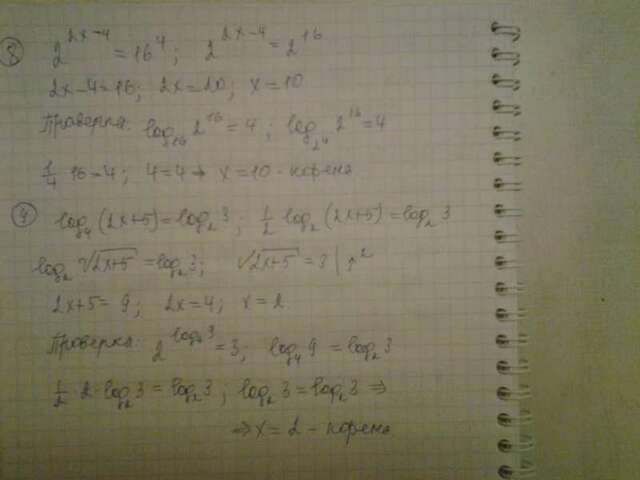 8) 2^(2x-4) = 16^4; 2^(2x-4) = 2^16
2x-4=16; 2x=20; x=10
Проверка: log₁₆ 2^16 = 4; log_(2^4) 2^16 = 4
1/4 · 16 = 4; 4=4 → x=10 - корень
9) log₄(2x+5) = log₂ 3; 1/2 log₂(2x+5) = log₂ 3
log₂ √(2x+5) = log₂ 3; √(2x+5) = 3 | ↑²
2x+5=9; 2x=4; x=2.
Проверка: 2^(log₂ 3) = 3; log₄ 9 = log₂ 3
1/2 · 2 · log₂ 3 = log₂ 3; log₂ 3 = log₂ 3 ⇒
⇒ x=2 - корень